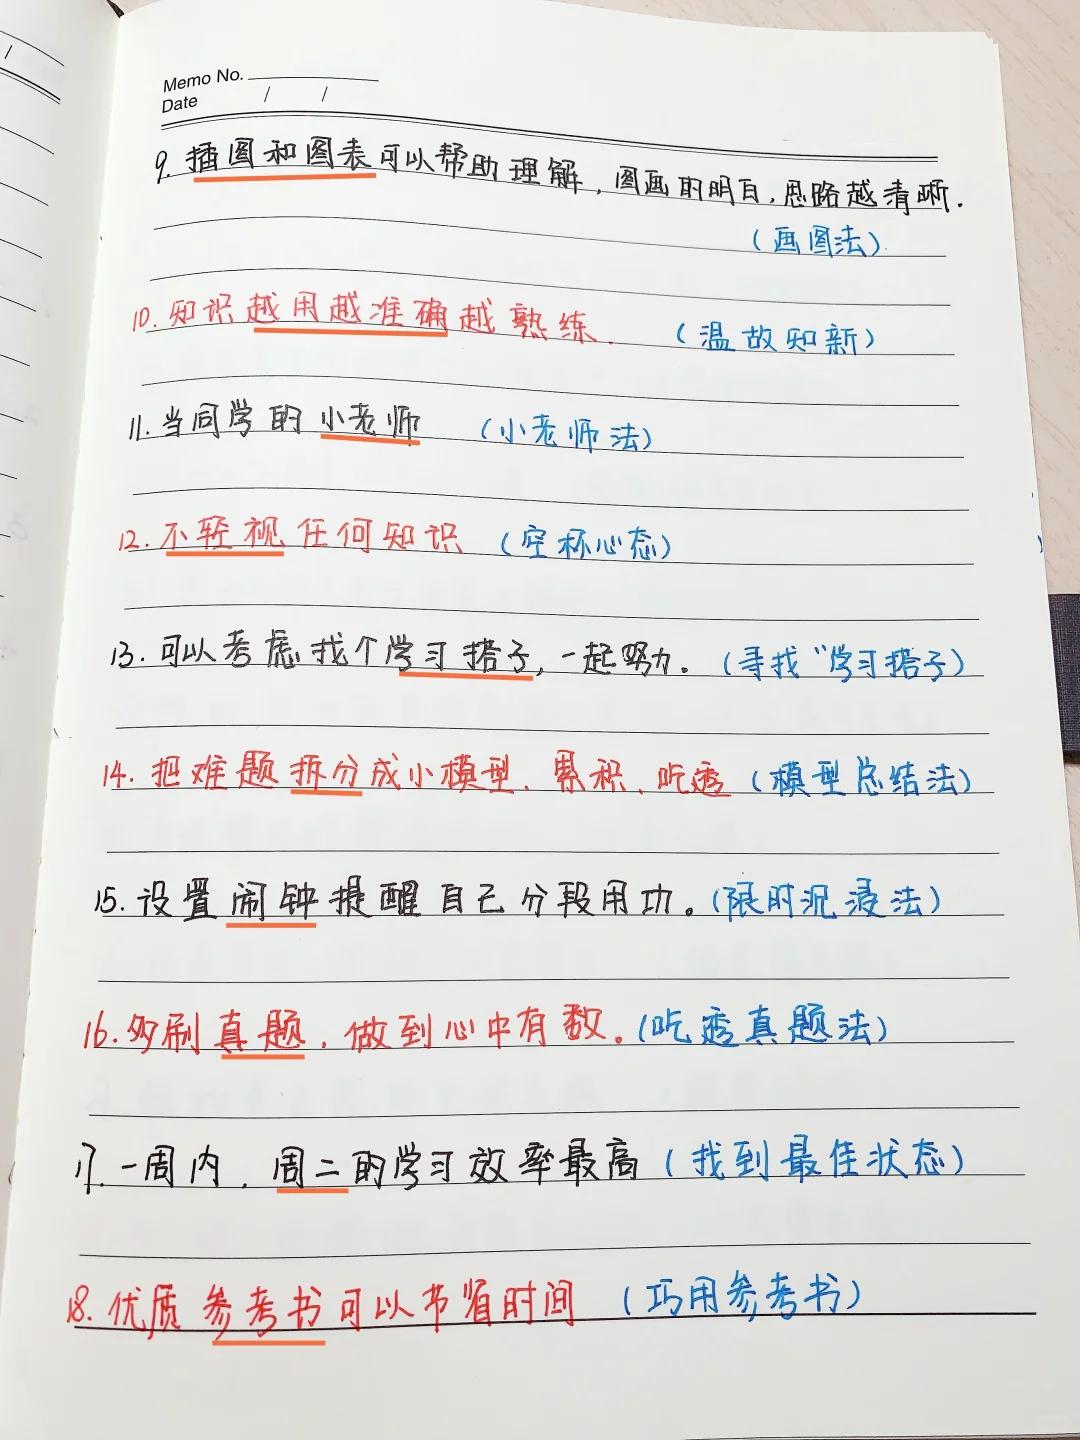 Memo No.
Date / /
9. 插图和图表可以帮助理解，图画的明白，思路越清晰.
(画图法)
10. 知识越用越准确越熟练. (温故知新)
11. 当同学的小老师 (小老师法)
12. 不轻视任何知识 (空杯心态)
13. 可以考虑找个学习搭子，一起努力. (寻找“学习搭子)
14. 把难题拆分成小模型、累积、吃透 (模型总结法)
15. 设置闹钟提醒自己分段用功。(限时沉浸法)
16. 多刷真题，做到心中有数。(吃透真题法)
17. 一周内，周二的学习效率最高 (找到最佳状态)
18. 优质参考书可以节省时间 (巧用参考书)